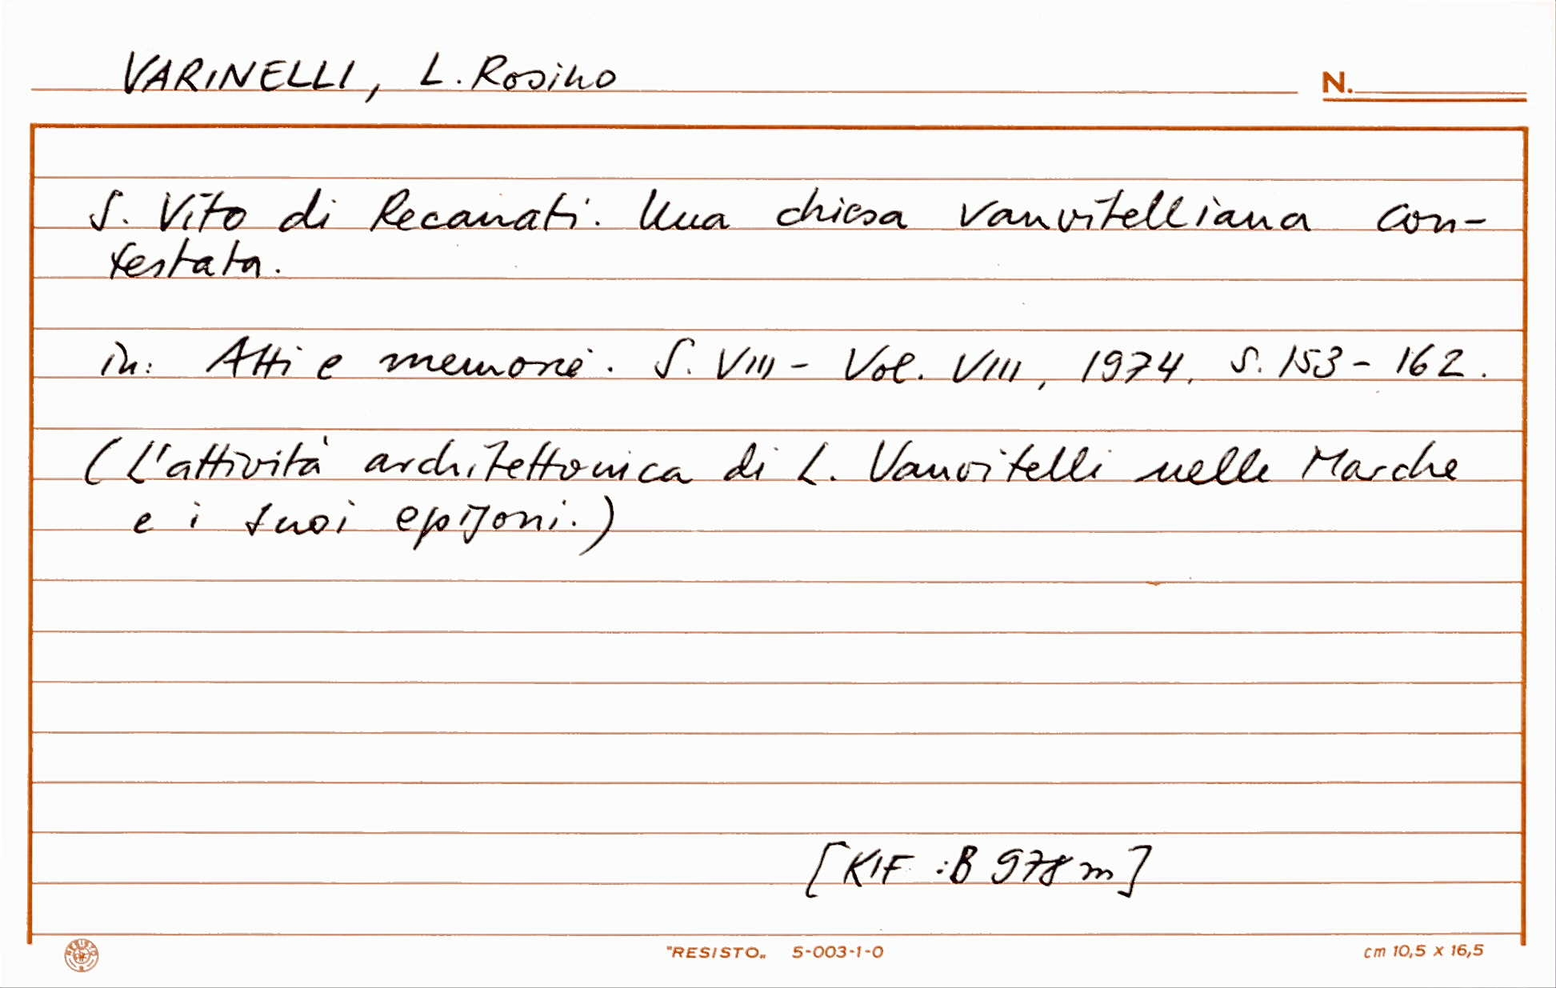 VARINELLI, L. Rosino
N.
S. Vito di Recanati. Una chiesa vanvitelliana con-
testata.
in: Atti e memorie. S. VIII - Vol. VIII, 1974, S. 153 - 162.
(L'attività architettonica di L. Vanvitelli nelle Marche
e i suoi epigoni.)
[KIF : B 978 m]
"RESISTO„ 5-003-1-0
cm 10,5 x 16,5